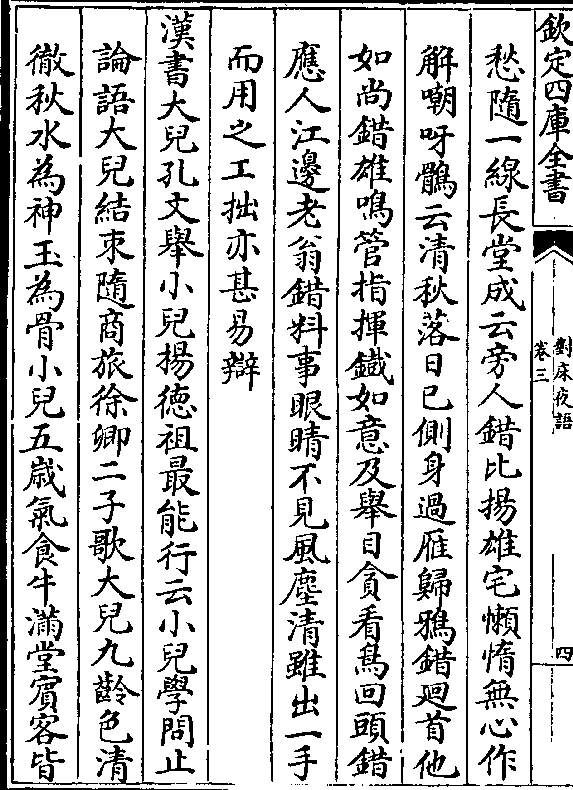 欽定四庫全書
對床夜語
卷三
四
愁隨一線長堂成云旁人錯比揚雄宅懶惰無心作
解嘲呀鶻云清秋落日已側身過雁歸鴉錯迴首他
如尚錯雄鳴管指揮鐡如意及舉目貪看鳥回頭錯
應人江邊老翁錯料事眼睛不見風塵清雖出一手
而用之工拙亦甚易辯
漢書大兒孔文舉小兒揚徳祖最能行云小兒學問止
論語大兒結束隨商旅徐卿二子歌大兒九齡色清
徹秋水為神玉為骨小兒五歲氣食牛滿堂賓客皆